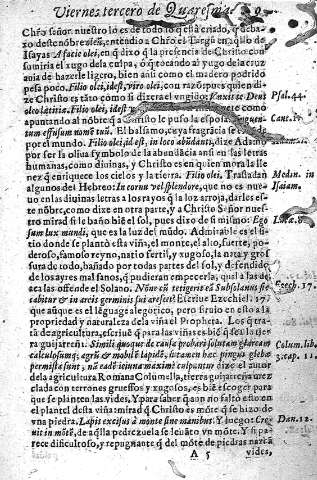 Viernes tercero de Quaresma.
Chřo señor nuestro lo es de todo lo q̃ esta criado, q̃ deba-
xo deste nõbre olei, entendio a Chřo el Targũ en aq̃llo de
Isayas A facie olei. en que dixo q̃ la presencia de Christo con
sumiria el yugo dela culpa, o q̃ tocando al yugo de la cruz
auia de hazerle ligero, bien assi como el madero podrido
pesa poco. Filio olei, idest, viro olei, con razõ pues quien di
ze Christo es tãto como si dixera el vngido: Vnxit te Deus
oleo lætitiæ. Filio olei, idest,
apuntando al nõbre q̃ a Christo le puso la esposa
tum effusum nomẽ tuũ. El balsamo, cuya fragrãcia se
por el mundo. Filio olei, id est, in loco abũdanti, dize Adamo
por ser la oliua symbolo de la abundãcia assi en las letras
humanas, como diuinas, y Christo es en quien mora la lle
nez q̃ enriquece los cielos y la tierra. Filio olei. Trasladan
algunos del Hebreo: In cornu vel splendore, que no es nue-
uo en las diuinas letras a los rayos q̃ la luz arroja, darles es-
te nõbre, como dize en otra parte, y a Christo Señor nues-
tro mirad si le bañò biẽ el sol, pues dixo de si mismo: Ego
sum lux mundi, que es la luz del mũdo. Admirable es el si-
tio donde se plantò esta viña, el monte, el alto, fuerte, po-
deroso, famoso reyno, natio fertil, y xugoso, la nata y gros
sura de todo, bañado por todas partes del sol, y defendido
de los ayres mal sanos, q̃ pudieran empecerla, qual a las de
aca las offende el Solano. Nõne cũ tetigerit eũ Subsolanus sic-
cabitur & in areis germinis sui arescet? Escriue Ezechiel. 17
que aũque es el lẽguaje alegorico, pero fixolo en esto a la
propriedad y naturaleza dela viña el Propheta. Los q̃ tra-
tã de agricultura, escriuẽ q̃ para las viñas es biẽ q̃ sea la tier
ra guijarreña. Simili quoque de causa probari solutam glaream
calculosumq́; agrũ & mobilẽ lapidẽ, si tamen hæc pingui glebæ
permista sunt, nã eadẽ ieiuna maximè culpantur dize el autor
dela agricultura Romana Columella, tierra guijarreña mez
clada con terrones gruessos y xugosos, es biẽ escoger para
que se planten las vides, Y para saber q̃ aun no faltò esto en
el plantel desta viña: mirad q̃ Christo es mõte q̃ se hizo de
vna piedra. Lapis excisus à monte sine manibus. Y luego: Cre-
uit in mõtẽ, de aq̃lla pedrezuela se leuãto vn mõte: Y si pa-
rece dificultoso, y repugnante q̃ del mõte de piedras nazcã
A 5
vides,
Psal. 44.
Cant. 1.
Medin. in
Isaiam.
Lucæ. 8.
Ezech. 17.
Colum. lib.
3. cap. 11.
Dan. 12.